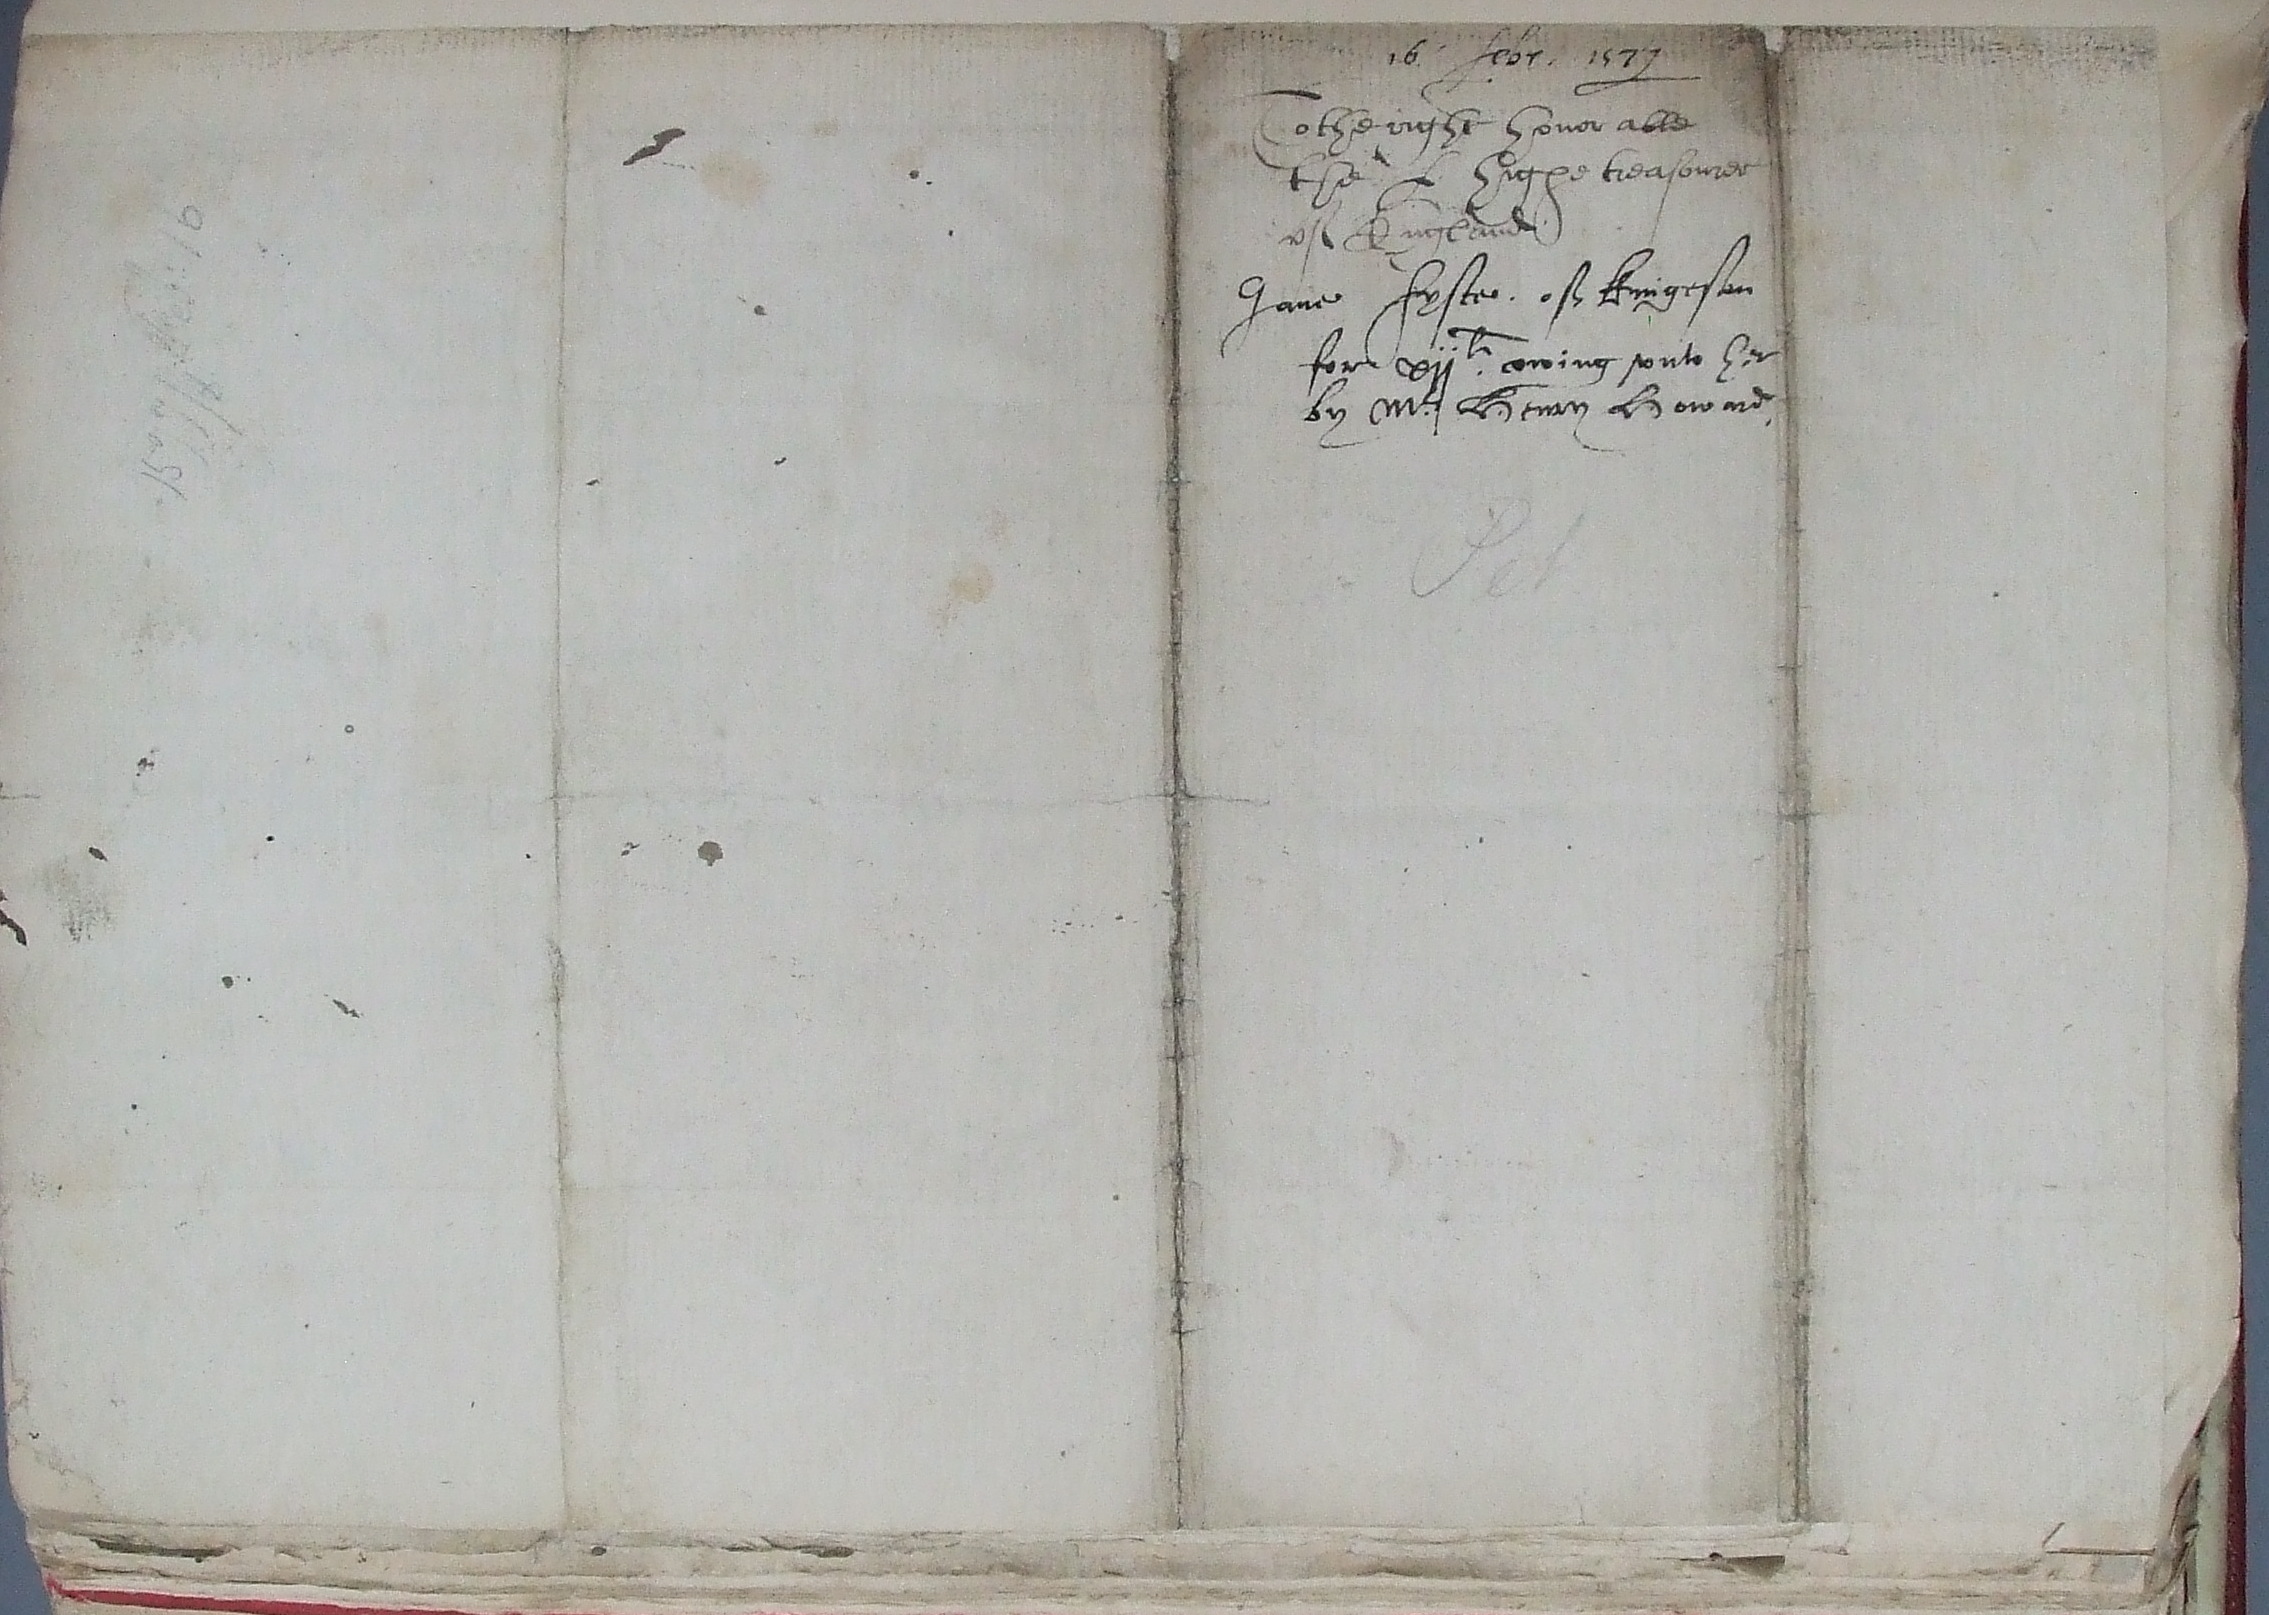 16. febr. 1577
To the right honorable
the L highe treasourer
off England
Jane fyster. off Kingeston
for xij li. owing vnto her
by Mr. Henry Howard.
Pet